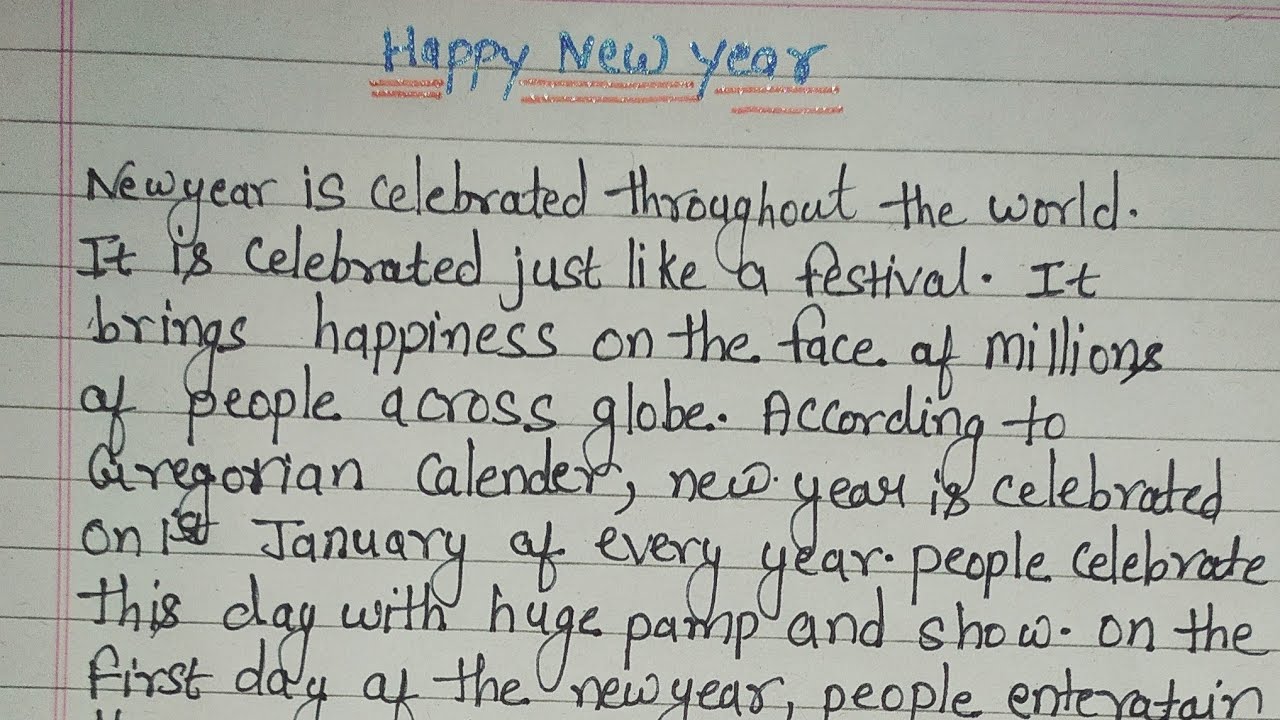 Happy New year
Newyear is celebrated throughout the world.
It is celebrated just like a festival. It
brings happiness on the face of millions
of people across globe. According to
Gregorian Calender, new year is celebrated
on 1st January of every year. people celebrate
this day with huge pamp and show. on the
first day of the newyear, people enteratain